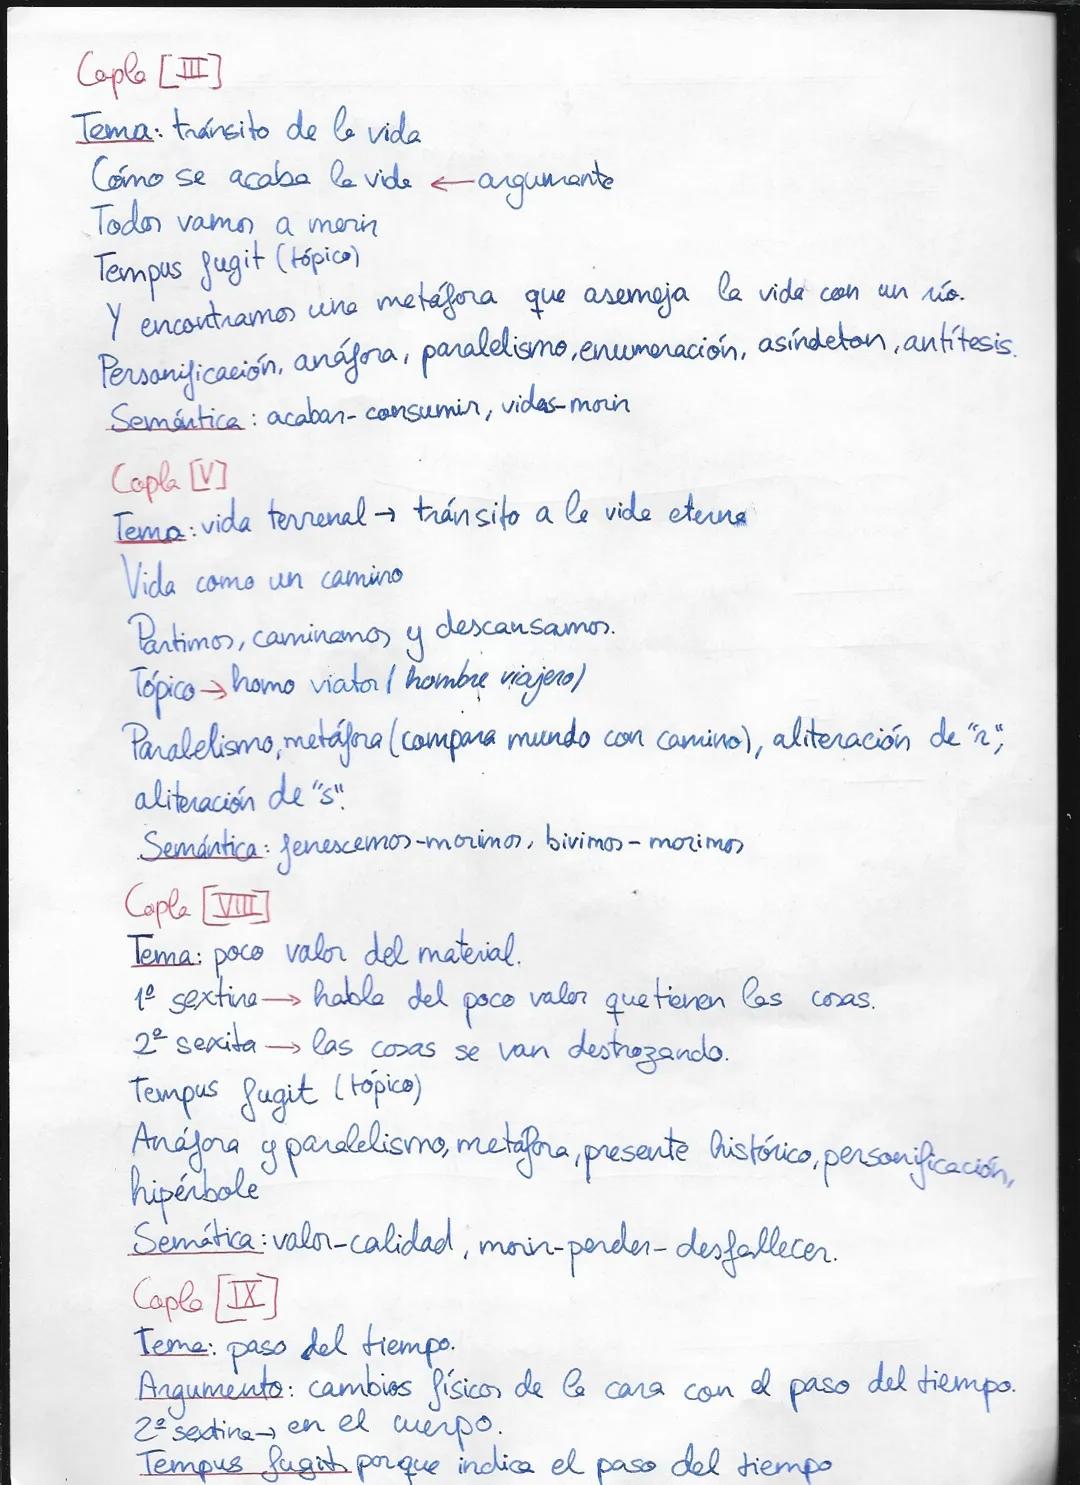 Copla [III]
Tema: tránsito de la vida
Cómo se acaba la vida ← argumento
Todos vamos a morir
Tempus fugit (tópico)
Y encontramos una metáfora que asemeja la vida con un río.
Personificación, anáfora, paralelismo, enumeración, asíndeton, antítesis.
Semántica: acabar-consumir, vidas-morir
Copla [V]
Tema: vida terrenal → tránsito a la vida eterna
Vida como un camino
Partimos, caminamos y descansamos.
Tópico → homo viator (hombre viajero)
Paralelismo, metáfora (compara mundo con camino), aliteración de "r",
aliteración de "s".
Semántica: fenescemos-morimos, bivimos-morimos
Copla [VIII]
Tema: poco valor del material.
1ª sextina → habla del poco valor que tienen las cosas.
2ª sexita → las cosas se van destrozando.
Tempus fugit (tópico)
Anáfora y paralelismo, metáfora, presente histórico, personificación,
hipérbole
Semática: valor-calidad, morir-perder-desfallecer.
Copla [IX]
Tema: paso del tiempo.
Argumento: cambios físicos de la cara con el paso del tiempo.
2ª sextina → en el cuerpo.
Tempus fugit porque indica el paso del tiempo